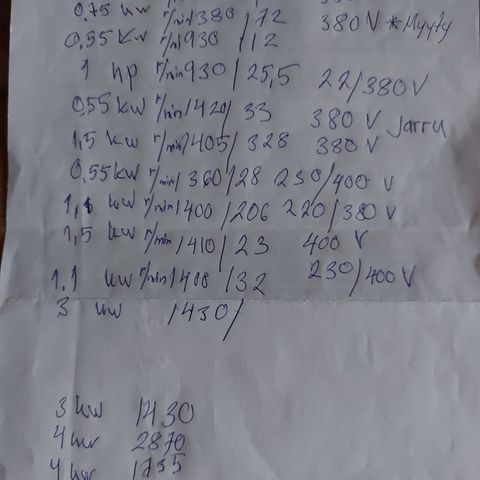 0,75 kw r/min 1380 / 72 380 V * Myyty
0,55 Kw r/min 930 / 12
1 hp r/min 930 / 25,5 22/380 V
0,55 kw r/min 1420 / 33 380 V Jarru
1,5 kw r/min 1405 / 328 380 V
0,55 kw r/min 1360 / 28 230/400 V
1,1 kw r/min 1400 / 206 220/380 V
1,5 kw r/min 1410 / 23 400 V
1.1 kw r/min 1400 / 32 230/400 V
3 kw 1430/
3 kw 1430
4 kw 2870
4 kw 1735